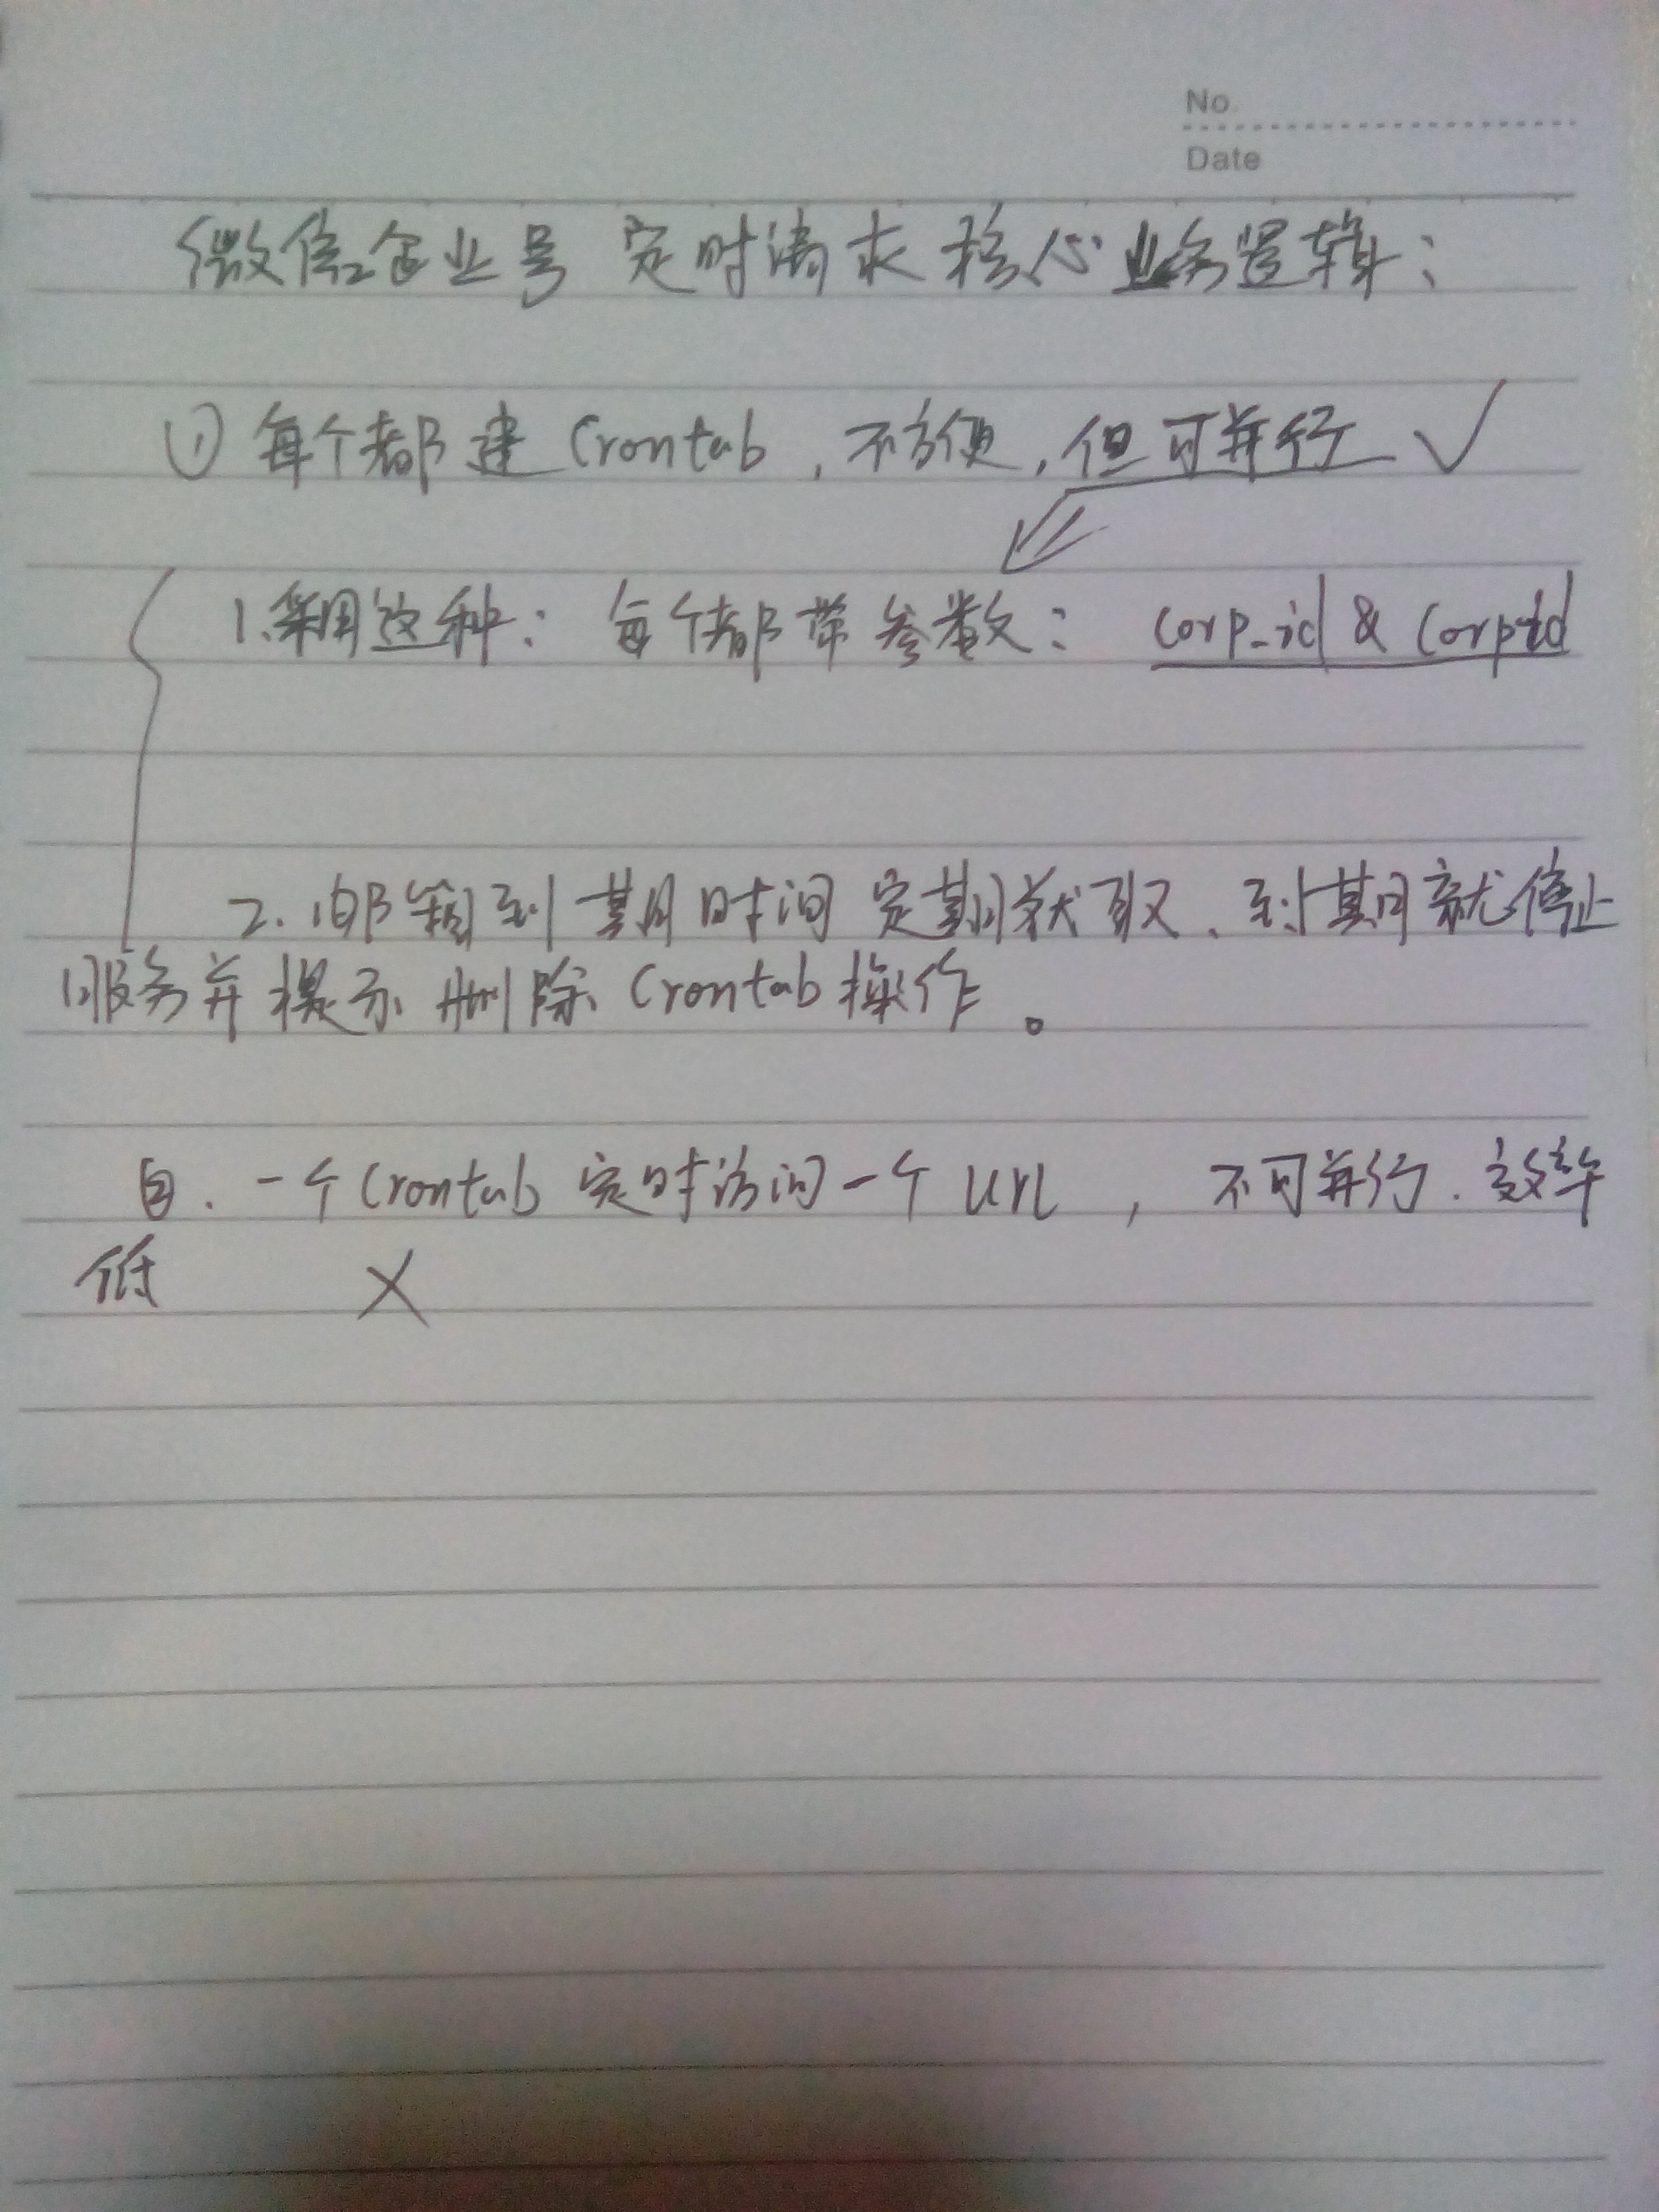 No.
Date
微信企业号 定时请求 核心业务逻辑：
① 每个都建 Crontab，不方便，但可并行 ✓
1.采用这种：每个都带参数：corp_id & corpid
2. 邮箱到期时间定期获取、到期就停止
服务并提示删除 Crontab 操作。
一个Crontab 定时访问一个 url ，不可并行．效率
低 ×